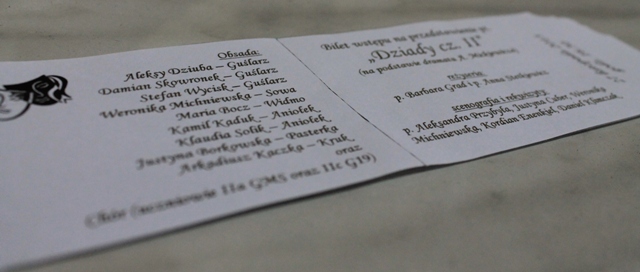 Obsada:
Aleksy Dziuba – Guślarz
Damian Skowronek – Guślarz
Stefan Wycisk – Guślarz
Weronika Michniewska – Sowa
Maria Bocz – Widmo
Kamil Kaduk – Aniołek
Klaudia Solik – Aniołek
Justyna Borkowska – Pasterka
Arkadiusz Kaczka – Kruk
oraz
Chór (uczniowie IIa GMS oraz IIc G19)
Bilet wstępu na przedstawienie pt.
„Dziady cz. II"
(na podstawie dramatu A. Mickiewicza)
Reżyseria
p. Barbara Grad i p. Anna
Scenografia i rekwizyty
p. Aleksandra Przybyła, Justyna Weronika
Michniewska, Korbian Dawid